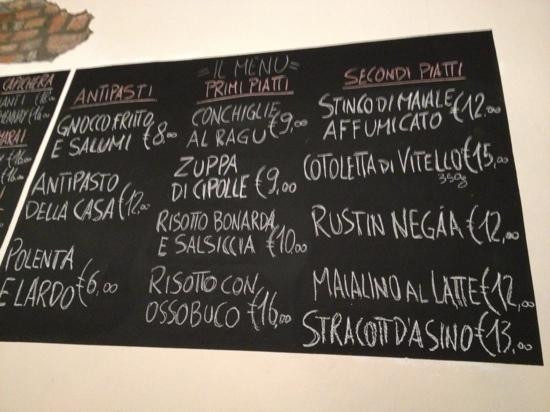 CAPICHERA
=IL MENÚ=
ANTIPASTI
GNOCCO FRITTO
E SALUMI €8,00
ANTIPASTO
DELLA CASA €12,00
POLENTA
E LARDO €6,00
PRIMI PIATTI
CONCHIGLIE
AL RAGÚ €9,00
ZUPPA
DI CIPOLLE €9,00
RISOTTO BONARDA
E SALSICCIA €10,00
RISOTTO CON
OSSOBUCO €16,00
SECONDI PIATTI
STINCO DI MAIALE €12,00
AFFUMICATO
COTOLETTA DI VITELLO €15,00
350g
RUSTIN NEGÁA €12,00
MAIALINO AL LATTE €12,00
STRACOTT D'ASINO €13,00